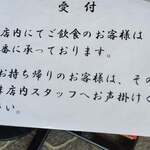 受付
店内にてご飲食のお客様は
番に承っております。
お持ち帰りのお客様は、その
店内スタッフへお声掛けく
さい。